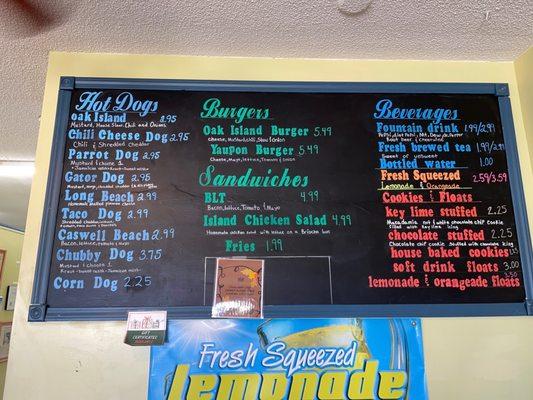 Hot Dogs
Oak Island 2.95
Mustard, House Slaw, Chili and Onions
Chili Cheese Dog 2.95
Chili & Shredded Cheddar
Parrot Dog 2.95
Mustard & choose 1
Gator Dog 2.95
Long Beach 2.99
Taco Dog 2.99
Caswell Beach 2.99
Chubby Dog 3.75
Mustard & Choose 1
Corn Dog 2.25
Burgers
Oak Island Burger 5.49
Yaupon Burger 5.49
Cheese, Mayo, lettuce, Tomato & Onion
Sandwiches
BLT 4.99
Bacon, lettuce, Tomato & Mayo
Island Chicken Salad 4.99
Fries 1.99
Beverages
Fountain drink 1.99/2.49
Fresh brewed tea 1.99/2.49
Sweet or unsweet
Bottled water 1.00
Fresh Squeezed 2.59/3.59
Lemonade & Orangeade
Cookies & Floats
key lime stuffed 2.25
filled with key lime icing
chocolate stuffed 2.25
Chocolate chip cookie stuffed with chocolate icing
house baked cookies 1.25
soft drink floats 3.00
3.50
lemonade & orangeade floats
GIFT
CERTIFICATES
Fresh Squeezed
Lemonade